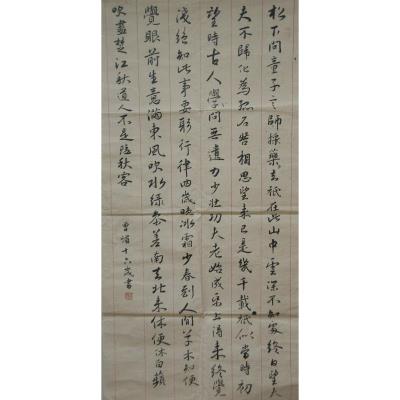 松下問童子言師採藥去祇在此山中雲深不知處終日望夫
夫不歸化為孤石苦相思望來已是幾千載祇似當時初
望時古人學問無遺力少壯功夫老始成紙上得來終覺
淺絕知此事要躬行律回歲晚冰霜少春到人間草木知便
覺眼前生意滿東風吹水綠參差南去北來休便休白蘋
吹盡楚江秋道人不是悲秋客
十六歲書